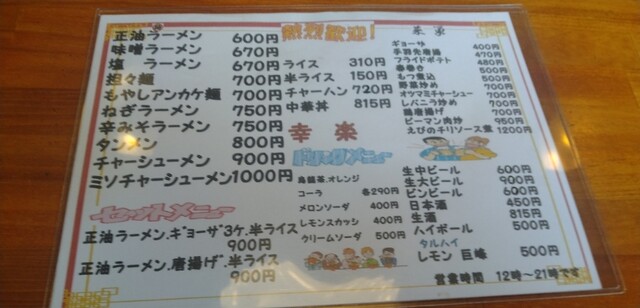 正油ラーメン 600円
味噌ラーメン 670円
塩 ラーメン 670円
担々麺 700円
もやしアンカケ麺 700円
ねぎラーメン 750円
辛みそラーメン 750円
タンメン 800円
チャーシューメン 900円
ミソチャーシューメン 1000円
セットメニュー
正油ラーメン.ギョーザ3ケ.半ライス
900円
正油ラーメン.唐揚げ.半ライス
900円
熱烈歓迎!
ライス 310円
半ライス 150円
チャーハン 720円
中華丼 815円
幸楽
ドリンクメニュー
烏龍茶.オレンジ
コーラ 各290円
メロンソーダ 400円
レモンスカッシ 400円
クリームソーダ 500円
菜
ギョーザ 400円
手羽先唐揚 470円
フライドポテト 480円
春巻き 500円
もつ煮込 500円
野菜炒め 700円
オツマミチャーシュー 700円
レバニラ炒め 700円
鶏唐揚げ 700円
ピーマン肉炒 950円
えびのチリソース煮 1200円
生中ビール 600円
生大ビール 900円
ビンビール 600円
日本酒 450円
生酒 815円
ハイボール 500円
タルハイ
レモン 巨峰 500円
営業時間 12時~21時です